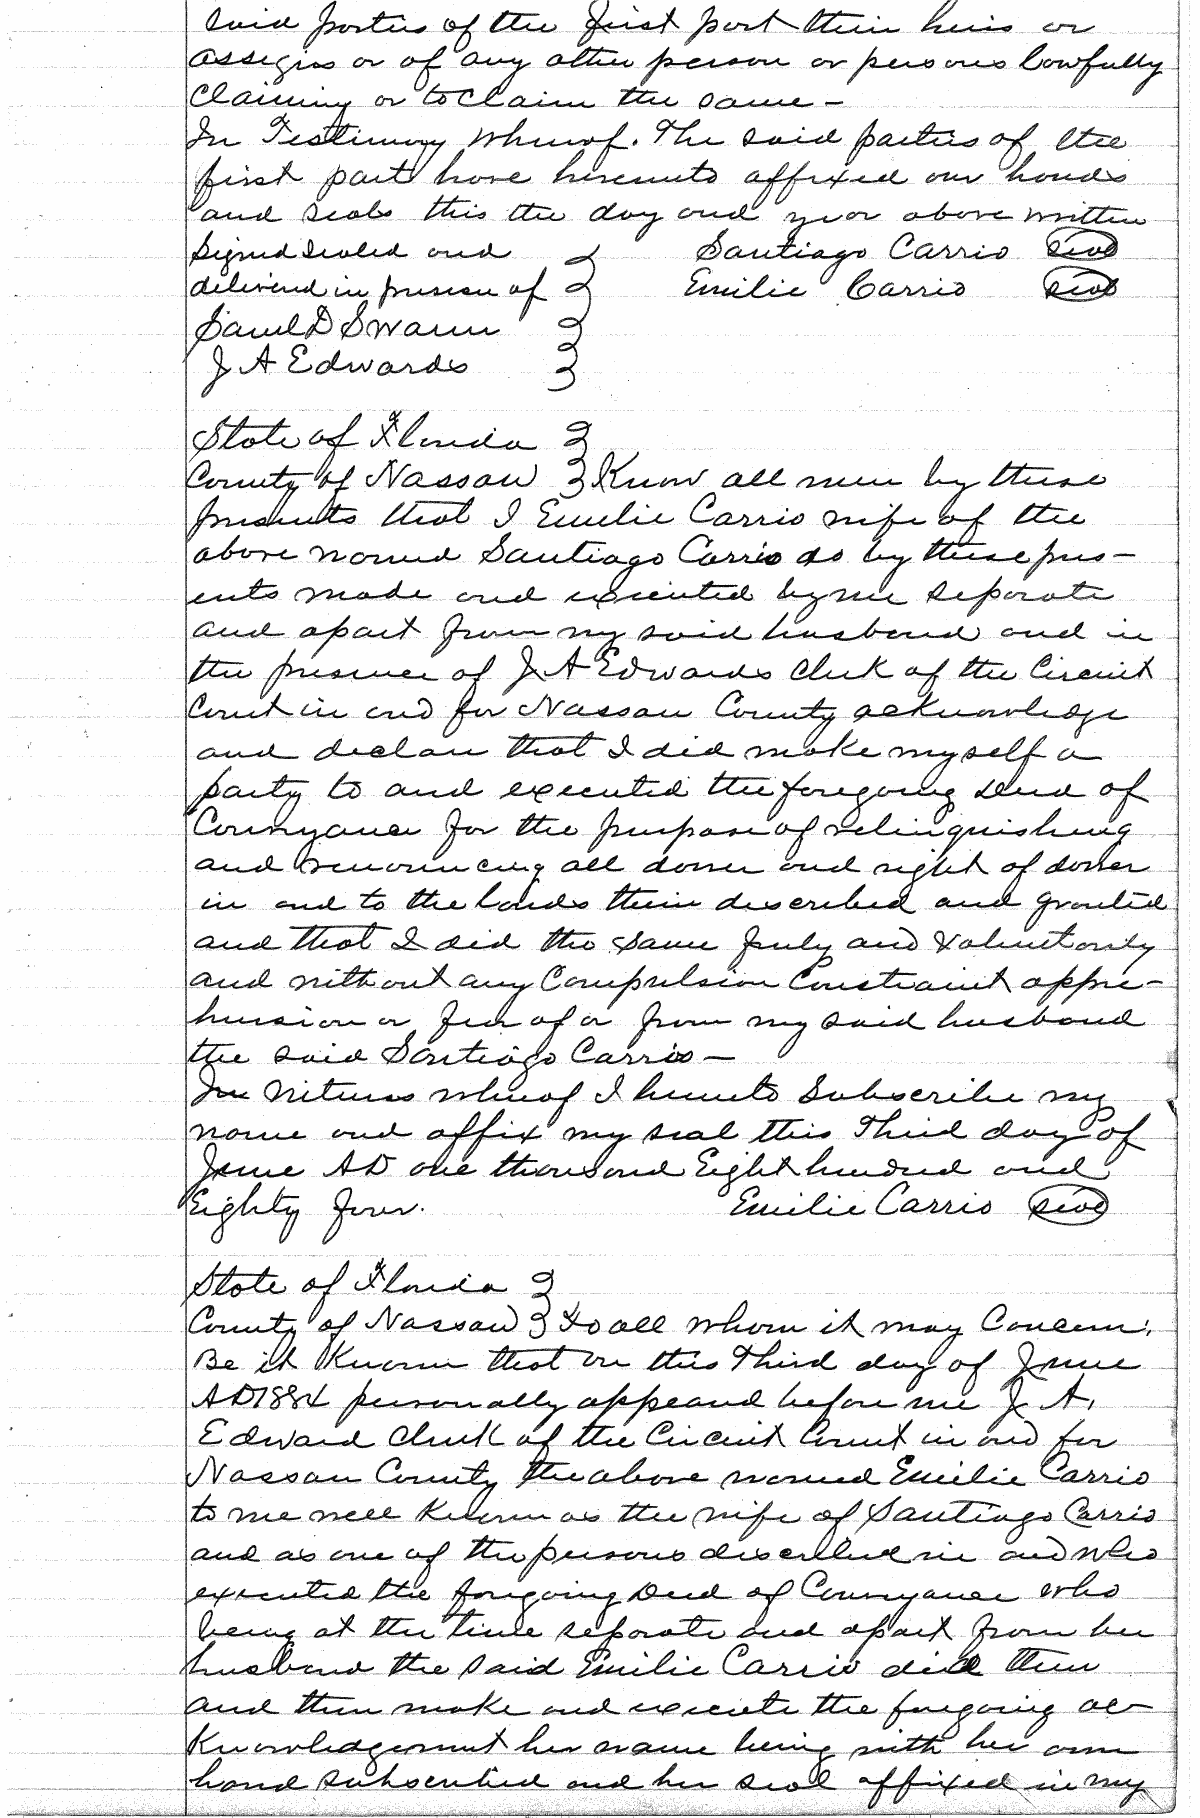 said parties of the first part their heirs or
assigns or of any other person or persons lawfully
claiming or to claim the same –
In Testimony Whereof. The said parties of the
first part have hereunto affixed our hands
and seals this the day and year above written
Signed sealed and } Santiago Carrio seal
delivered in presence of } Emilie Carrio seal
Saml D Swann }
J A Edwards }
State of Florida }
County of Nassau } Know all men by these
presents that I Emelie Carrio wife of the
above named Santiago Carrio do by these pres–
ents made and executed by me separate
and apart from my said husband and in
the presence of J. A Edwards Clerk of the Circuit
Court in and for Nassau County acknowledge
and declare that I did make myself a
party to and executed the foregoing Deed of
Conveyance for the purpose of relinquishing
and renouncing all dower and right of dower
in and to the lands therein described and granted
and that I did the same freely and voluntarily
and without any Compulsion Constraint appre–
hension or fear of or from my said husband
the said Santiago Carrio –
In Witness whereof I hereunto Subscribe my
name and affix my seal this Third day of
June AD one thousand Eight hundred and
Eighty four. Emilie Carrio seal
State of Florida }
County of Nassau } To all whom it may Concern:
Be it Known that on this Third day of June
AD 1884 personally appeared before me J. A.
Edward Clerk of the Circuit Court in and for
Nassau County the above named Emilie Carrio
to me well Known as the wife of Santiago Carrio
and as one of the persons described in and who
executed the foregoing Deed of Conveyance who
being at the time separate and apart from her
husband the said Emilie Carrio did then
and there make and execute the foregoing ac–
Knowledgement her name being with her own
hand subscribed and her seal affixed in my